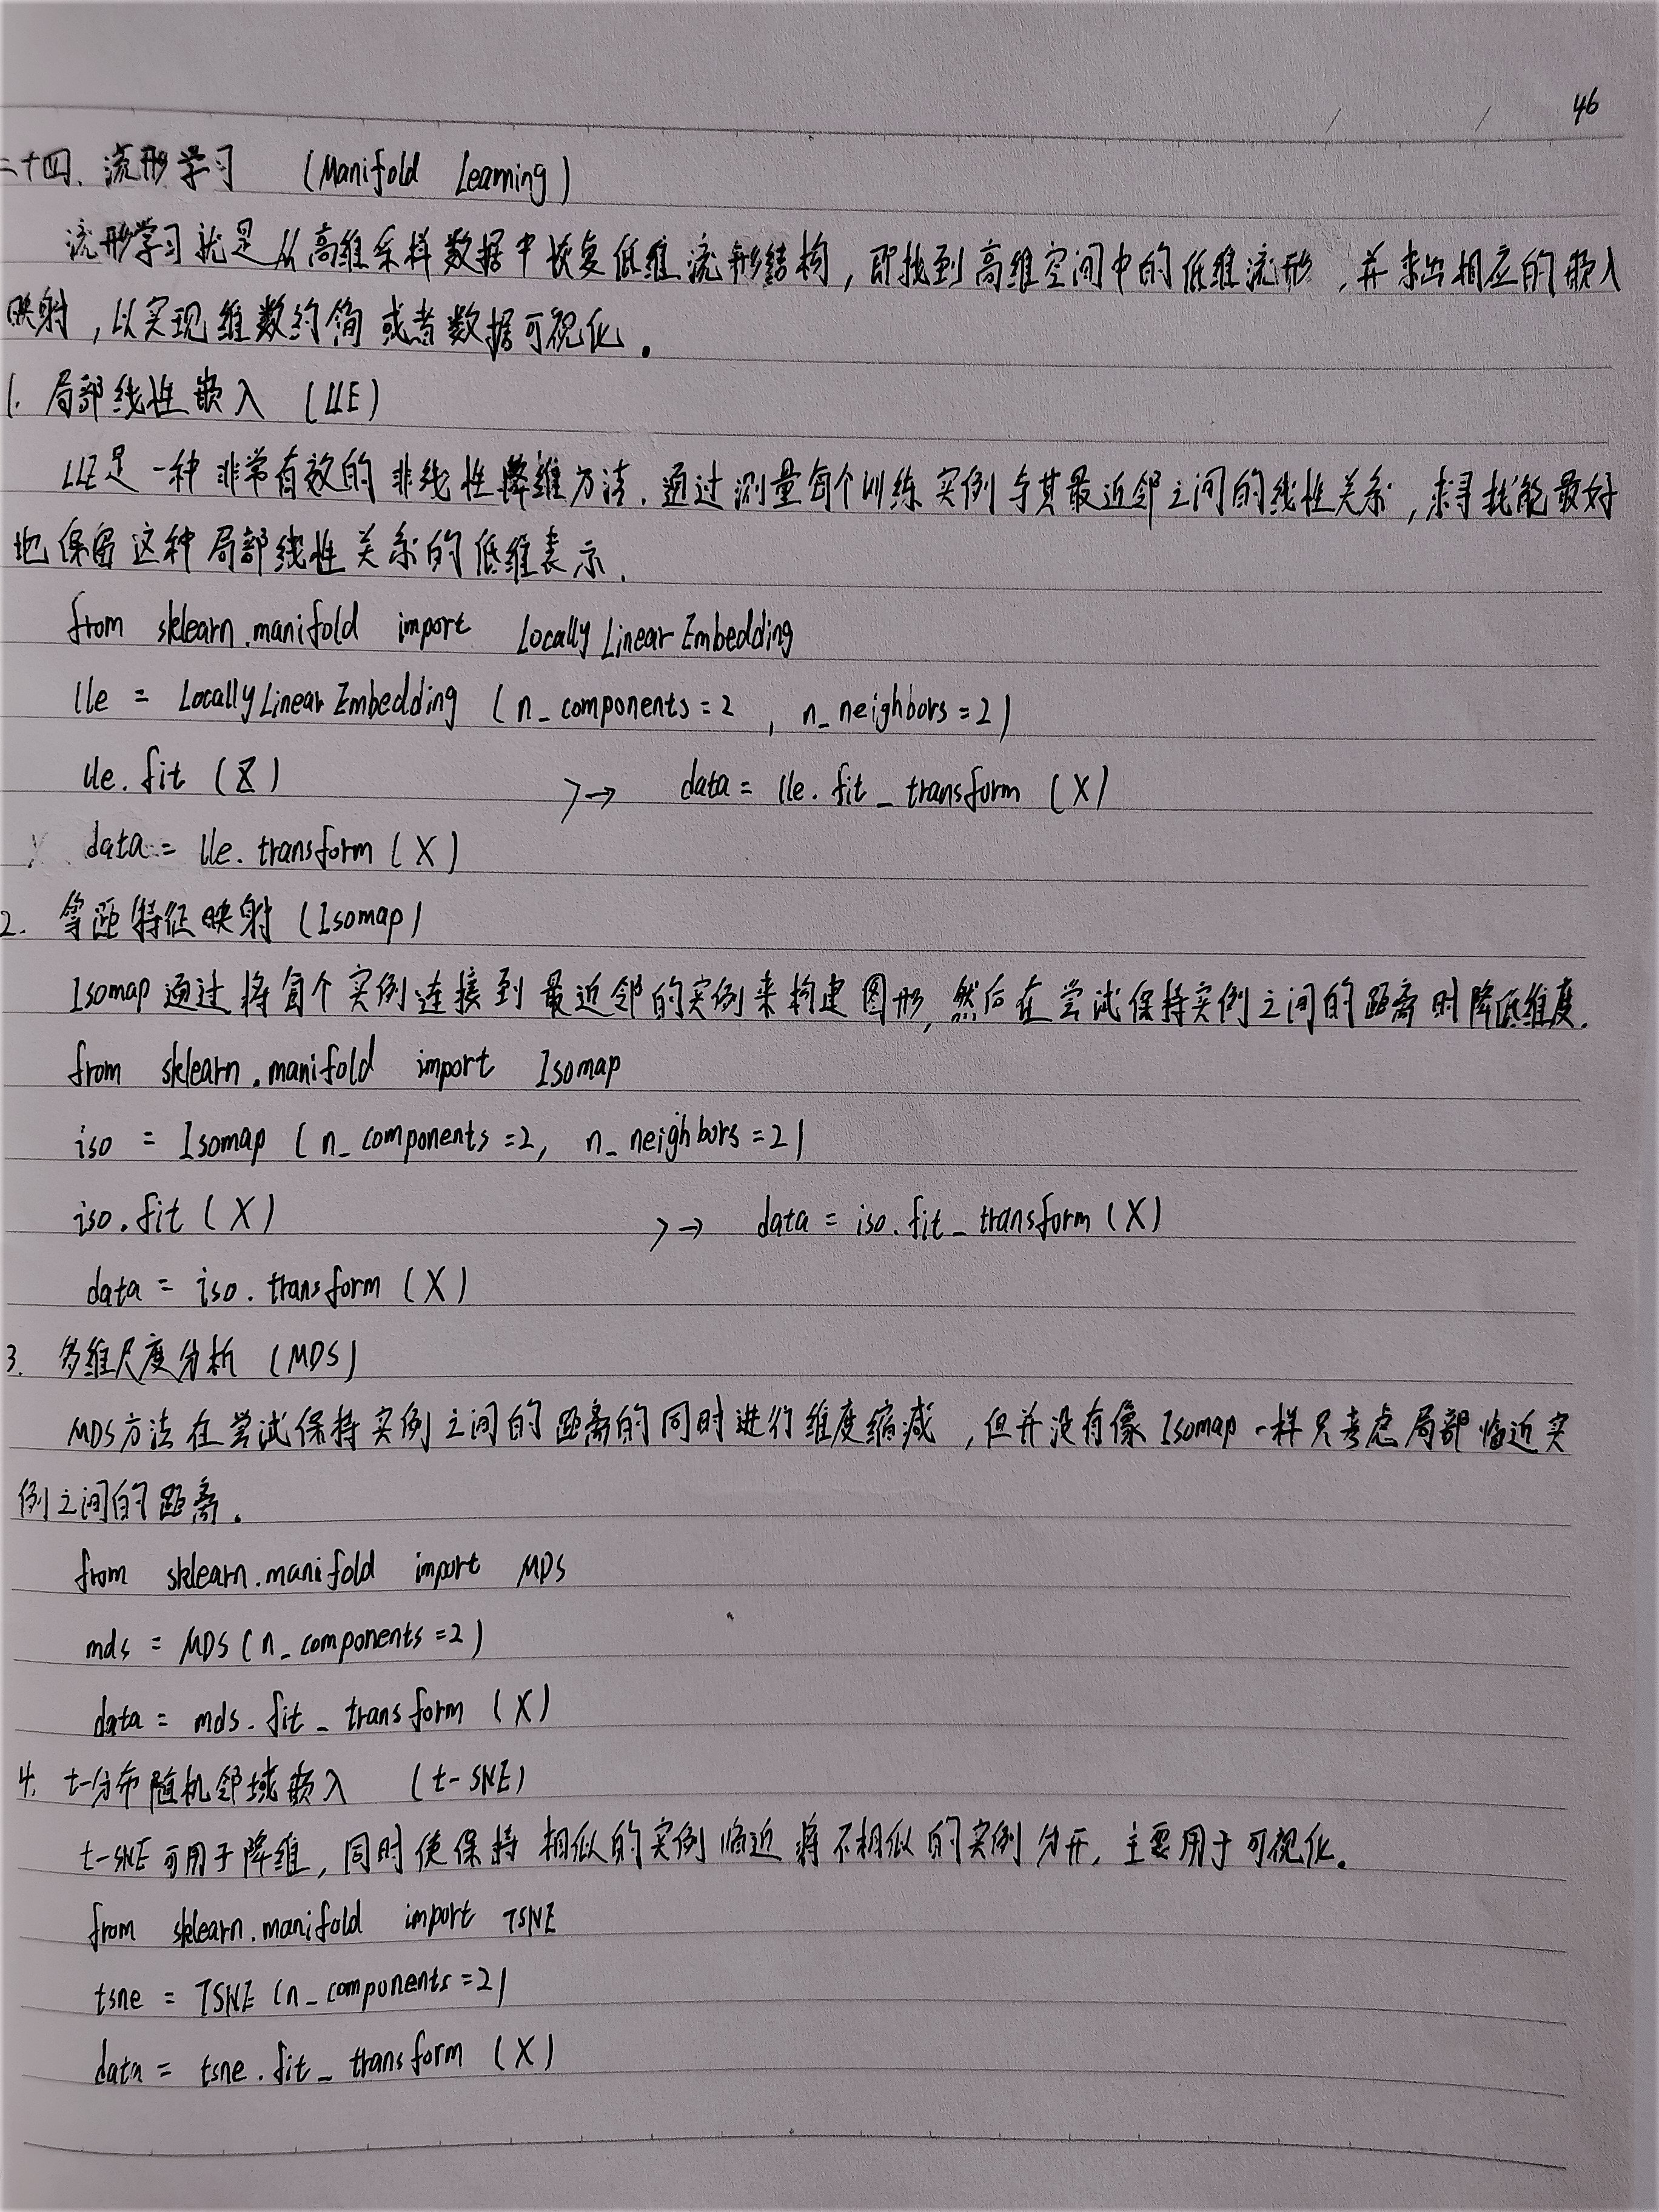 46
二十四. 流形学习 (Manifold Learning)
流形学习就是从高维采样数据中恢复低维流形结构, 即找到高维空间中的低维流形, 并求出相应的嵌入
映射, 以实现维数约简或者数据可视化.
1. 局部线性嵌入 (LLE)
LLE是一种非常有效的非线性降维方法. 通过测量每个训练实例与其最近邻之间的线性关系, 来寻找能最好
地保留这种局部线性关系的低维表示.
from sklearn.manifold import LocallyLinearEmbedding
lle = LocallyLinearEmbedding (n_components=2, n_neighbors=2)
lle.fit (X)
>→ data = lle.fit_transform (X)
data = lle.transform (X)
2. 等距特征映射 (Isomap)
Isomap通过将每个实例连接到最近邻的实例来构建图形, 然后在尝试保持实例之间的距离时降低维度.
from sklearn.manifold import Isomap
iso = Isomap (n_components=2, n_neighbors=2)
iso.fit (X)
>→ data = iso.fit_transform (X)
data = iso.transform (X)
3. 多维尺度分析 (MDS)
MDS方法在尝试保持实例之间的距离的同时进行维度缩减, 但并没有像Isomap一样只考虑局部临近实
例之间的距离.
from sklearn.manifold import MDS
mds = MDS (n_components=2)
data = mds.fit_transform (X)
4. t-分布随机邻域嵌入 (t-SNE)
t-SNE可用于降维, 同时使保持相似的实例临近将不相似的实例分开, 主要用于可视化.
from sklearn.manifold import TSNE
tsne = TSNE (n_components=2)
data = tsne.fit_transform (X)